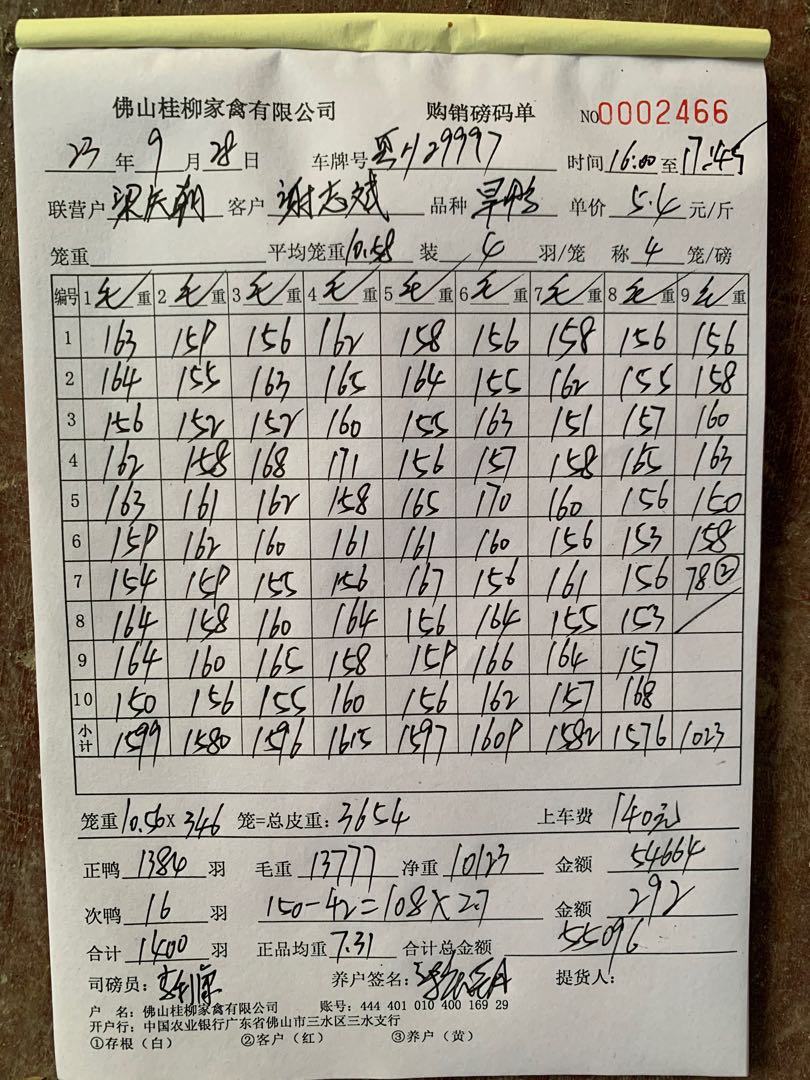 佛山桂柳家禽有限公司 购销磅码单 NO0002466
23年9月28日 车牌号 29997 时间16:00至17:45
联营户 客户谢志斌 品种旱鸭 单价5.4元/斤
笼重 平均笼重10.58 装4羽/笼 称4笼/磅
编号 1毛重 2毛重 3毛重 4毛重 5毛重 6毛重 7毛重 8毛重 9毛重
1 163 159 156 162 158 156 158 156 156
2 164 155 163 165 164 155 162 155 158
3 156 152 152 160 155 163 151 157 160
4 162 158 168 171 156 157 158 165 163
5 163 161 162 158 165 170 160 156 150
6 159 162 160 161 161 160 156 153 158
7 154 159 155 156 167 156 161 156 78②
8 164 158 160 164 156 164 155 153
9 164 160 165 158 159 166 164 157
10 150 156 155 160 156 162 157 168
小计 1599 1580 1596 1615 1597 1609 1582 1576 1023
笼重10.56X346笼=总皮重:3654 上车费140元
正鸭1384羽 毛重13777 净重10123 金额54664
次鸭16羽 150-42=108X2.7 金额292
合计1400羽 正品均重7.31 合计总金额55096
司磅员: 养户签名: 提货人:
户 名:佛山桂柳家禽有限公司 账号:444 401 010 400 169 29
开户行:中国农业银行广东省佛山市三水区三水支行
①存根(白) ②客户(红) ③养户(黄)